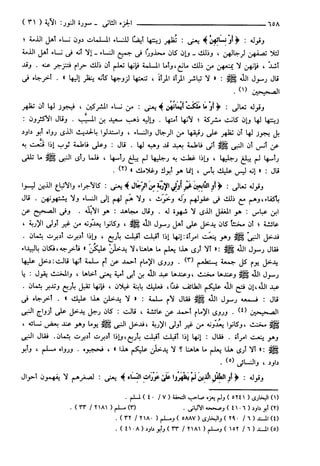 ٦٥٨ الجزء الثاني - سورة النور: الآية ( ٣١ )
وقوله : ﴿ أو نسائهن ﴾ يعني : تُظهر زينتها أيضًا للنساء المسلمات دون نساء أهل الذمة ؛
لئلا تصفهن لرجالهن . وذلك - وإن كان محذورًا في جميع النساء - إلا أنه في نساء أهل الذمة
أشد . فإنهن لا يمنعهن من ذلك مانع ، وأما المسلمة فإنها تعلم أن ذلك حرام فتنزجر عنه . وقد
قال رسول الله ﷺ : « لا تباشر المرأة المرأة ، تنعتها لزوجها كأنه ينظر إليها » . أخرجاه في
الصحيحين (١) .
وقوله تعالى : ﴿ أو ما ملكت أيمانهن ﴾ يعني : من نساء المشركين ، فيجوز لها أن تظهر
زينتها لها وإن كانت مشركة ؛ لأنها أمتها . وإليه ذهب سعيد بن المسيّب . وقال الأكثرون :
بل يجوز لها أن تظهر على رقيقها من الرجال والنساء ، واستدلوا بالحديث الذي رواه أبو داود
عن أنس أن النبي ﷺ أتى فاطمة بعبد قد وهبه لها . قال : وعلى فاطمة ثوب إذا قنّعت به
رأسها لم يبلغ رجليها ، وإذا غطت به رجليها لم يبلغ رأسها ، فلما رأى النبي ﷺ ما تلقى
قال : « إنه ليس عليك بأس ، إنما هو أبوك وغلامك » (٢) .
وقوله تعالى : ﴿ أو التابعين غير أولي الإربة من الرجال ﴾ يعني : كالأجراء والأتباع الذين ليسوا
بأكفاء ، وهم مع ذلك في عقولهم وله وخوث ، ولا هم لهم إلى النساء ولا يشتهونهن . قال
ابن عباس : هو المغفل الذي لا شهوة له . وقال مجاهد : هو الأبله . وفي الصحيح عن
عائشة ؛ أن مخنثًا كان يدخل على أهل رسول الله ﷺ ، وكانوا يعدونه من غير أولي الإربة ،
فدخل النبيُّ ﷺ وهو ينعت امرأة : إنها إذا أقبلت أقبلت بأربع ، وإذا أدبرت أدبرت بثمان .
فقال رسول الله ﷺ : « ألا أرى هذا يعلم ما هاهنا ، لا يدخلن عليكن » فأخرجه ، فكان بالبيداء
يدخل يوم كل جمعة يستطعم (٣) . وروى الإمام أحمد عن أم سلمة أنها قالت : دخل عليها
رسول الله ﷺ وعندها مخنث ، وعندها عبد الله بن أبي أمية يعني أخاها ، والمخنث يقول : يا
عبد الله ، إن فتح الله عليكم الطائف غدًا ، فعليك بابنة غيلان ، فإنها تقبل بأربع وتدبر بثمان .
قال : فسمعه رسول الله ﷺ فقال لأم سلمة : « لا يدخلن هذا عليك » . أخرجاه في
الصحيحين (٤) . وروى الإمام أحمد عن عائشة ، قالت : كان رجل يدخل على أزواج النبي
ﷺ مخنث ، وكانوا يعدّونه من غير أولي الإربة ، فدخل النبي ﷺ يومًا وهو عند بعض نسائه ،
وهو ينعت امرأة . فقال : إنها إذا أقبلت أقبلت بأربع ، وإذا أدبرت أدبرت بثمان . فقال النبي
ﷺ : « ألا أرى هذا يعلم ما هاهنا ؟ لا يدخلن عليكم هذا » ، فحجبوه . ورواه مسلم ، وأبو
داود ، والنسائي (٥) .
وقوله : ﴿ أو الطفل الذين لم يظهروا على عورات النساء ﴾ يعني : لصغرهم لا يفهمون أحوال
(١) البخاري ( ٥٢٤١ ) ولم يعزه صاحب التحفة ( ٧ / ٤٠ ) لمسلم .
(٢) أبو داود ( ٤١٠٦ ) وصححه الألباني . (٣) مسلم ( ٢١٨١ / ٣٣ ) .
(٤) المسند ( ٦ / ٢٩٠ ) والبخاري ( ٥٨٨٧ ) ومسلم ( ٢١٨٠ / ٣٢ ) .
(٥) المسند ( ٦ / ١٥٢ ) ومسلم ( ٢١٨١ / ٣٣ ) وأبو داود ( ٤١٠٨ ) .